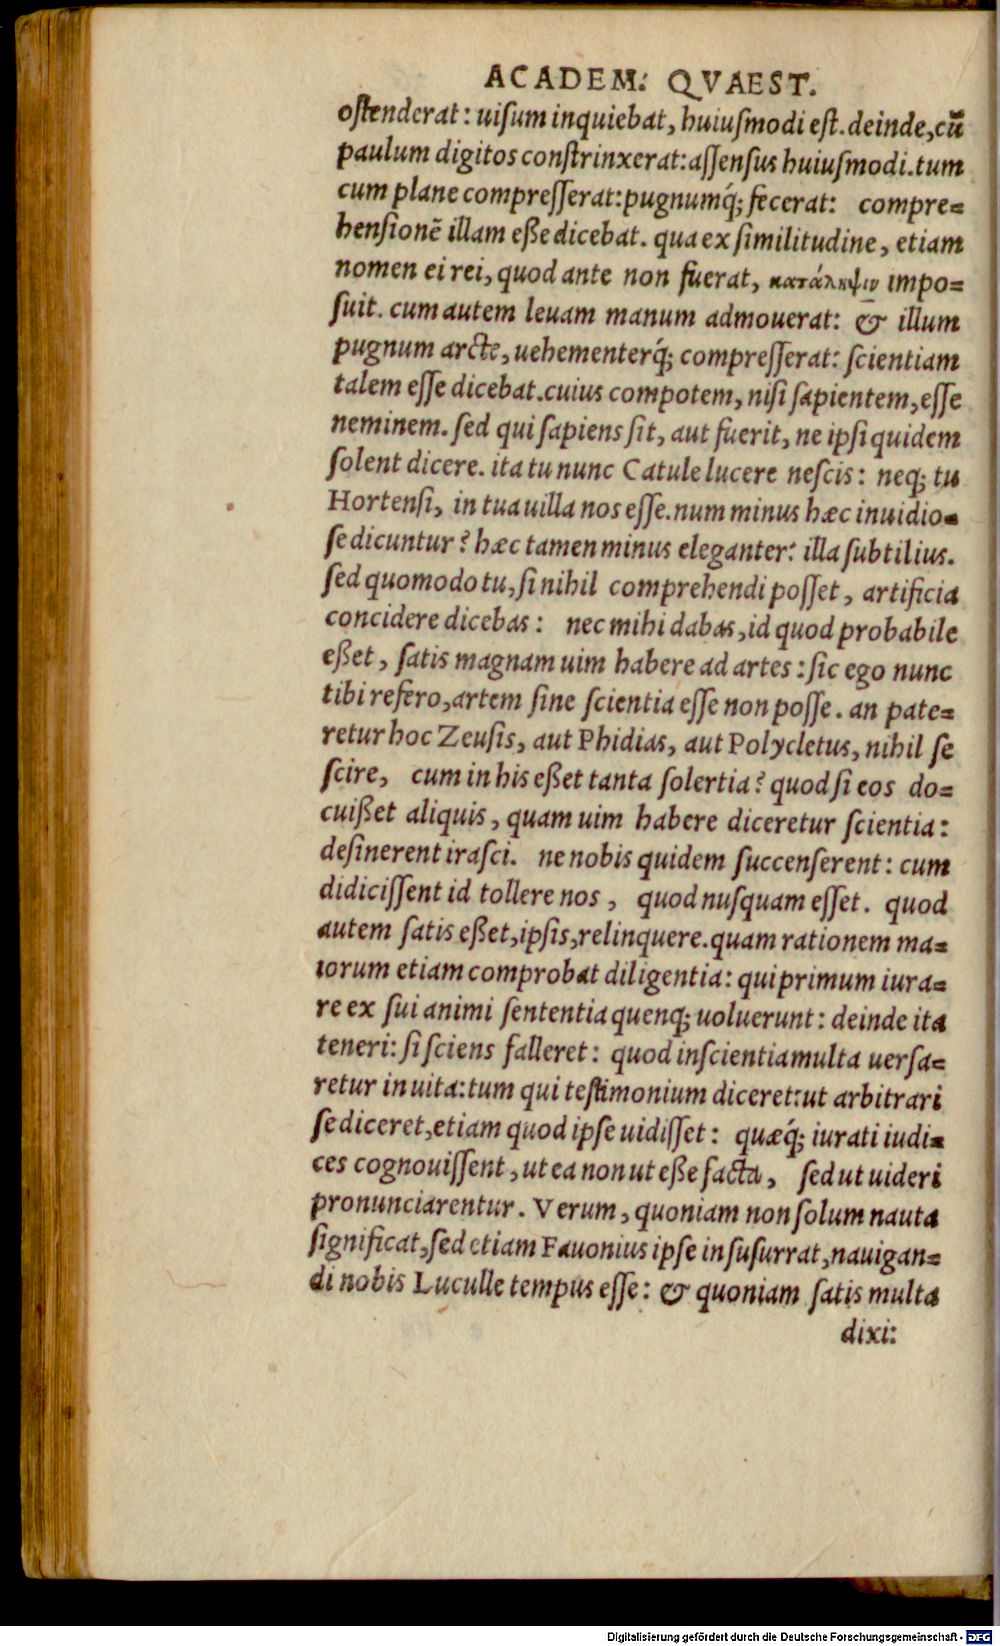 ACADEM. QVAEST.
ostenderat: uisum inquiebat, huiusmodi est. deinde, cū
paulum digitos constrinxerat: assensus huiusmodi. tum
cum plane compresserat: pugnumq́; fecerat: compre=
hensionē illam eße dicebat. qua ex similitudine, etiam
nomen ei rei, quod ante non fuerat, κατάληψιν impo=
suit. cum autem leuam manum admouerat: & illum
pugnum arcte, uehementerq́; compresserat: scientiam
talem esse dicebat. cuius compotem, nisi sapientem, esse
neminem. sed qui sapiens sit, aut fuerit, ne ipsi quidem
solent dicere. ita tu nunc Catule lucere nescis: neq; tu
Hortensi, in tua uilla nos esse. num minus hæc inuidio=
se dicuntur? hæc tamen minus eleganter: illa subtilius.
sed quomodo tu, si nihil comprehendi posset, artificia
concidere dicebas: nec mihi dabas, id quod probabile
eßet, satis magnam uim habere ad artes: sic ego nunc
tibi refero, artem sine scientia esse non posse. an pate=
retur hoc Zeusis, aut Phidias, aut Polycletus, nihil se
scire, cum in his eßet tanta solertia? quod si eos do=
cuißet aliquis, quam uim habere diceretur scientia:
desinerent irasci. ne nobis quidem succenserent: cum
didicissent id tollere nos, quod nusquam esset. quod
autem satis eßet, ipsis, relinquere. quam rationem ma=
iorum etiam comprobat diligentia: qui primum iura=
re ex sui animi sententia quenq; uoluerunt: deinde ita
teneri: si sciens falleret: quod inscientia multa uersa=
retur in uita: tum qui testimonium diceret: ut arbitrari
se diceret, etiam quod ipse uidisset: quæq́; iurati iudi=
ces cognouissent, ut ea non ut eße facta, sed ut uideri
pronunciarentur. Verum, quoniam non solum nauta
significat, sed etiam Fauonius ipse insusurrat, nauigan=
di nobis Luculle tempus esse: & quoniam satis multa
dixi:
Digitalisierung gefördert durch die Deutsche Forschungsgemeinschaft - DFG